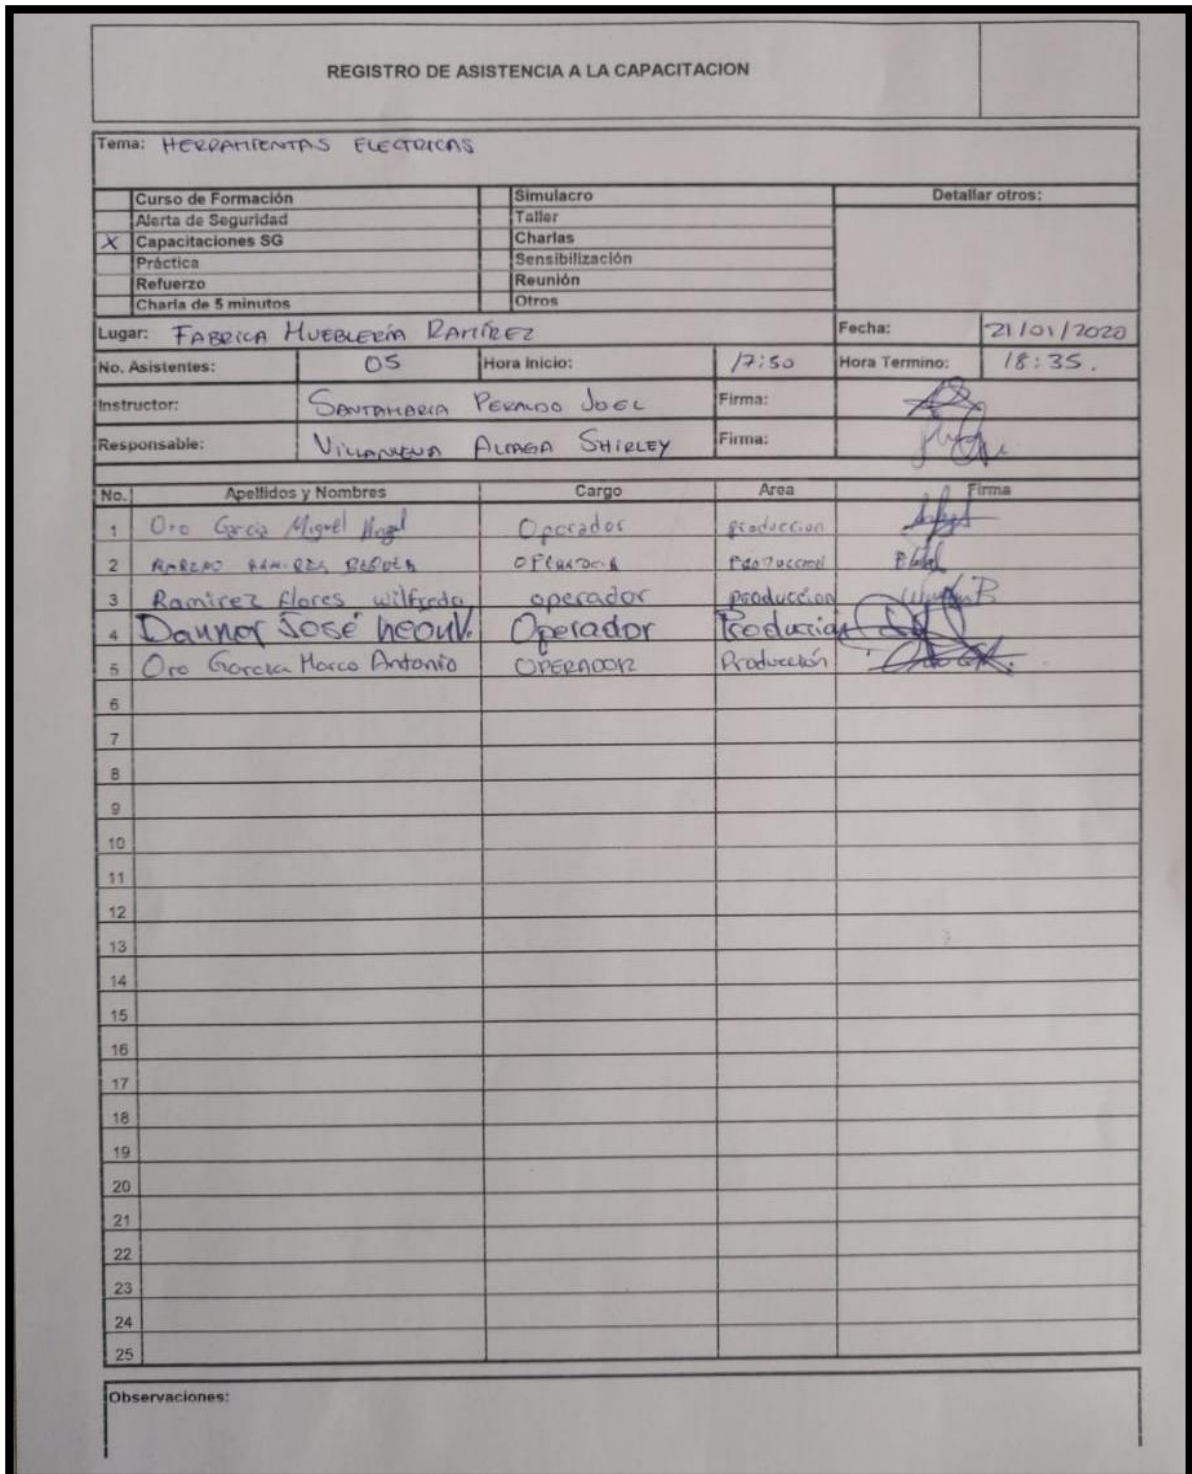 REGISTRO DE ASISTENCIA A LA CAPACITACION
Tema: HERRAMIENTAS ELECTRICAS
Curso de Formación Simulacro Detallar otros:
Alerta de Seguridad Taller
X Capacitaciones SG Charlas
Práctica Sensibilización
Refuerzo Reunión
Charla de 5 minutos Otros
Lugar: FABRICA MUEBLERÍA RAMÍREZ Fecha: 21/01/2020
No. Asistentes: 05 Hora Inicio: 17:50 Hora Termino: 18:35.
Instructor: SANTAMARIA JOEL Firma:
Responsable: VILLANUEVA ALIAGA SHIRLEY Firma:
No. Apellidos y Nombres Cargo Area Firma
1 Oro Garcia Miguel Angel Operador produccion
2 PRODUCCION
3 Ramirez flores wilfredo operador produccion
4 José Operador Produccion
5 Oro Garcia Marco Antonio OPERADOR Producción
6
7
8
9
10
11
12
13
14
15
16
17
18
19
20
21
22
23
24
25
Observaciones: